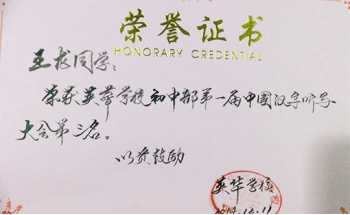 荣誉证书
HONORARY CREDENTIAL
王龙同学:
荣获英华学校初中部第一届中国汉字听写
大会第三名。
以资鼓励
英华学校